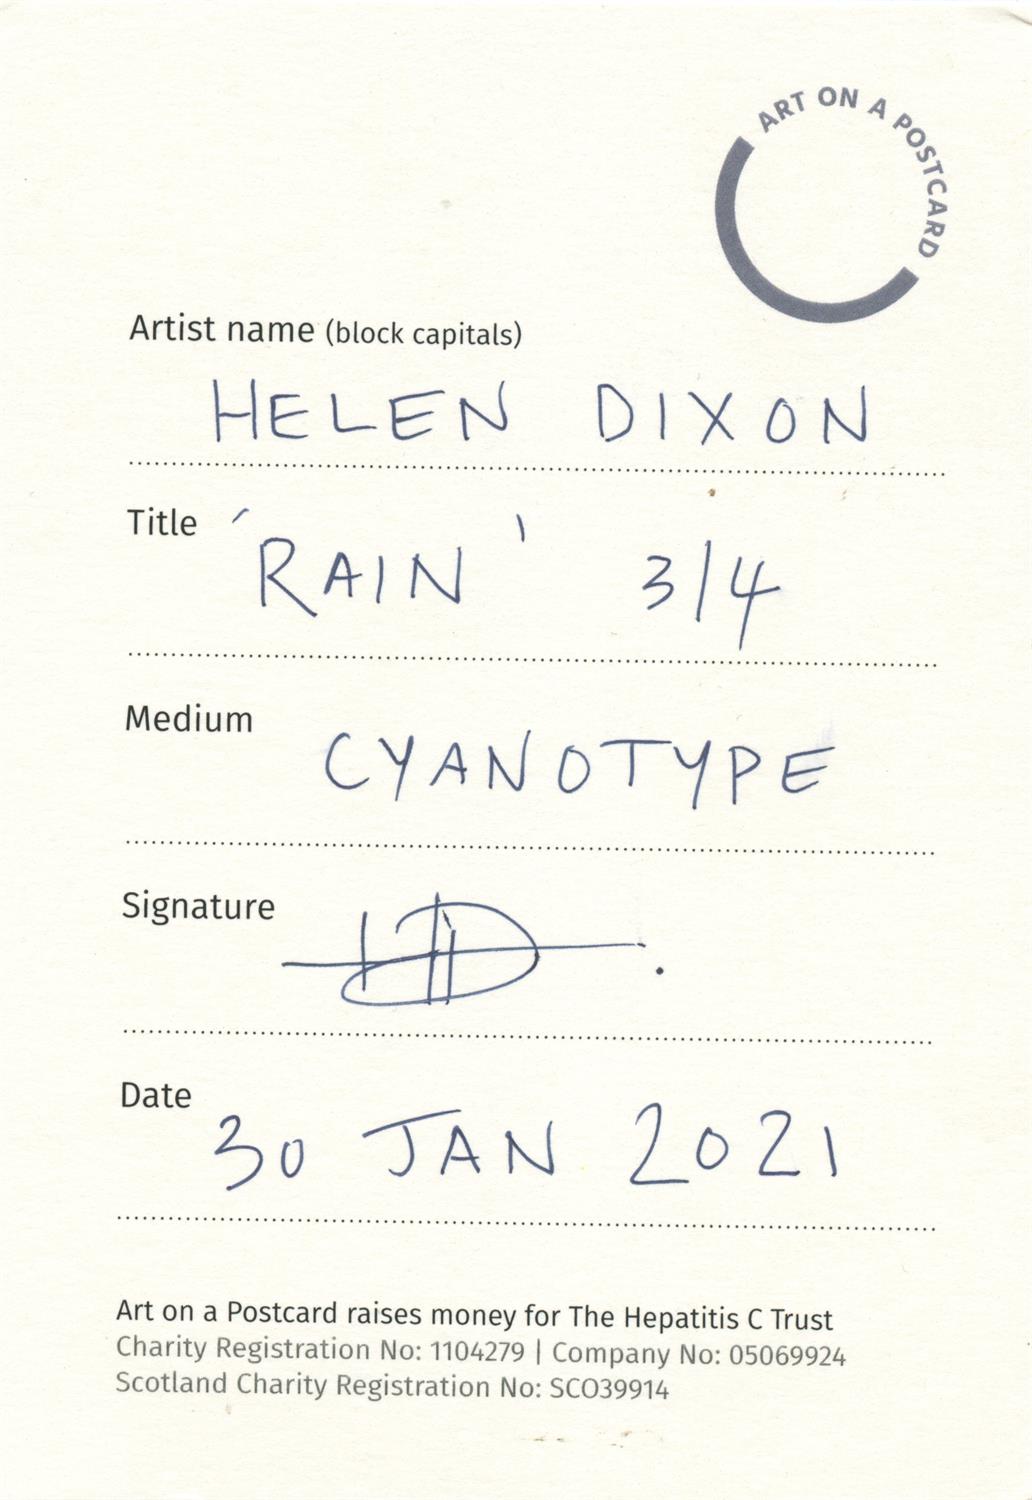 ART ON A POSTCARD
Artist name (block capitals)
HELEN DIXON
Title 'RAIN' 3/4
Medium
CYANOTYPE
Signature
Date
30 JAN 2021
Art on a Postcard raises money for The Hepatitis C Trust
Charity Registration No: 1104279 | Company No: 05069924
Scotland Charity Registration No: SCO39914